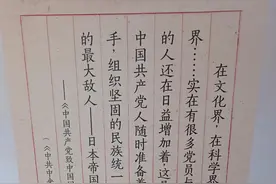 在文化界，在科学
界……实在有很多党员与
的人还在日益增加着，这
中国共产党人随时准备着
手，组织坚固的民族统一
的最大敌人——日本帝国
——《中国共产党致中国
（《中共中央